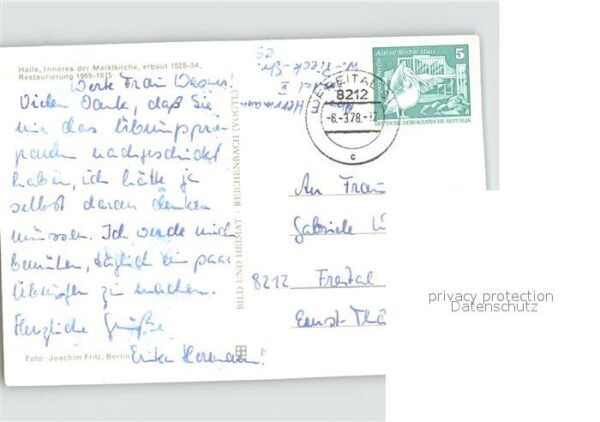 Halle, Inneres der Marktkirche, erbaut 1528-54,
Restaurierung 1969-1975
Werte Frau
Vielen Dank, daß Sie
mir das Übungsprä-
paraden nachgeschickt
haben, ich hätte ja
selbst daran denken
müssen. Ich werde mich
bemühen, täglich ein paar
Übungen zu machen.
Herzliche Grüße
Erika Hermann!
Foto: Joachim Fritz, Berlin
BILD UND HEIMAT · REICHENBACH (VOGTL)
Hermann
W. Pieck-Str.
25
FREITAL
8212
-6.-3.78.-12
c
Alfred-Brehm-Haus
5
DEUTSCHE DEMOKRATISCHE REPUBLIK
An Frau
Gabriele
8212 Freital
Ernst-Thä
privacy protection
Datenschutz